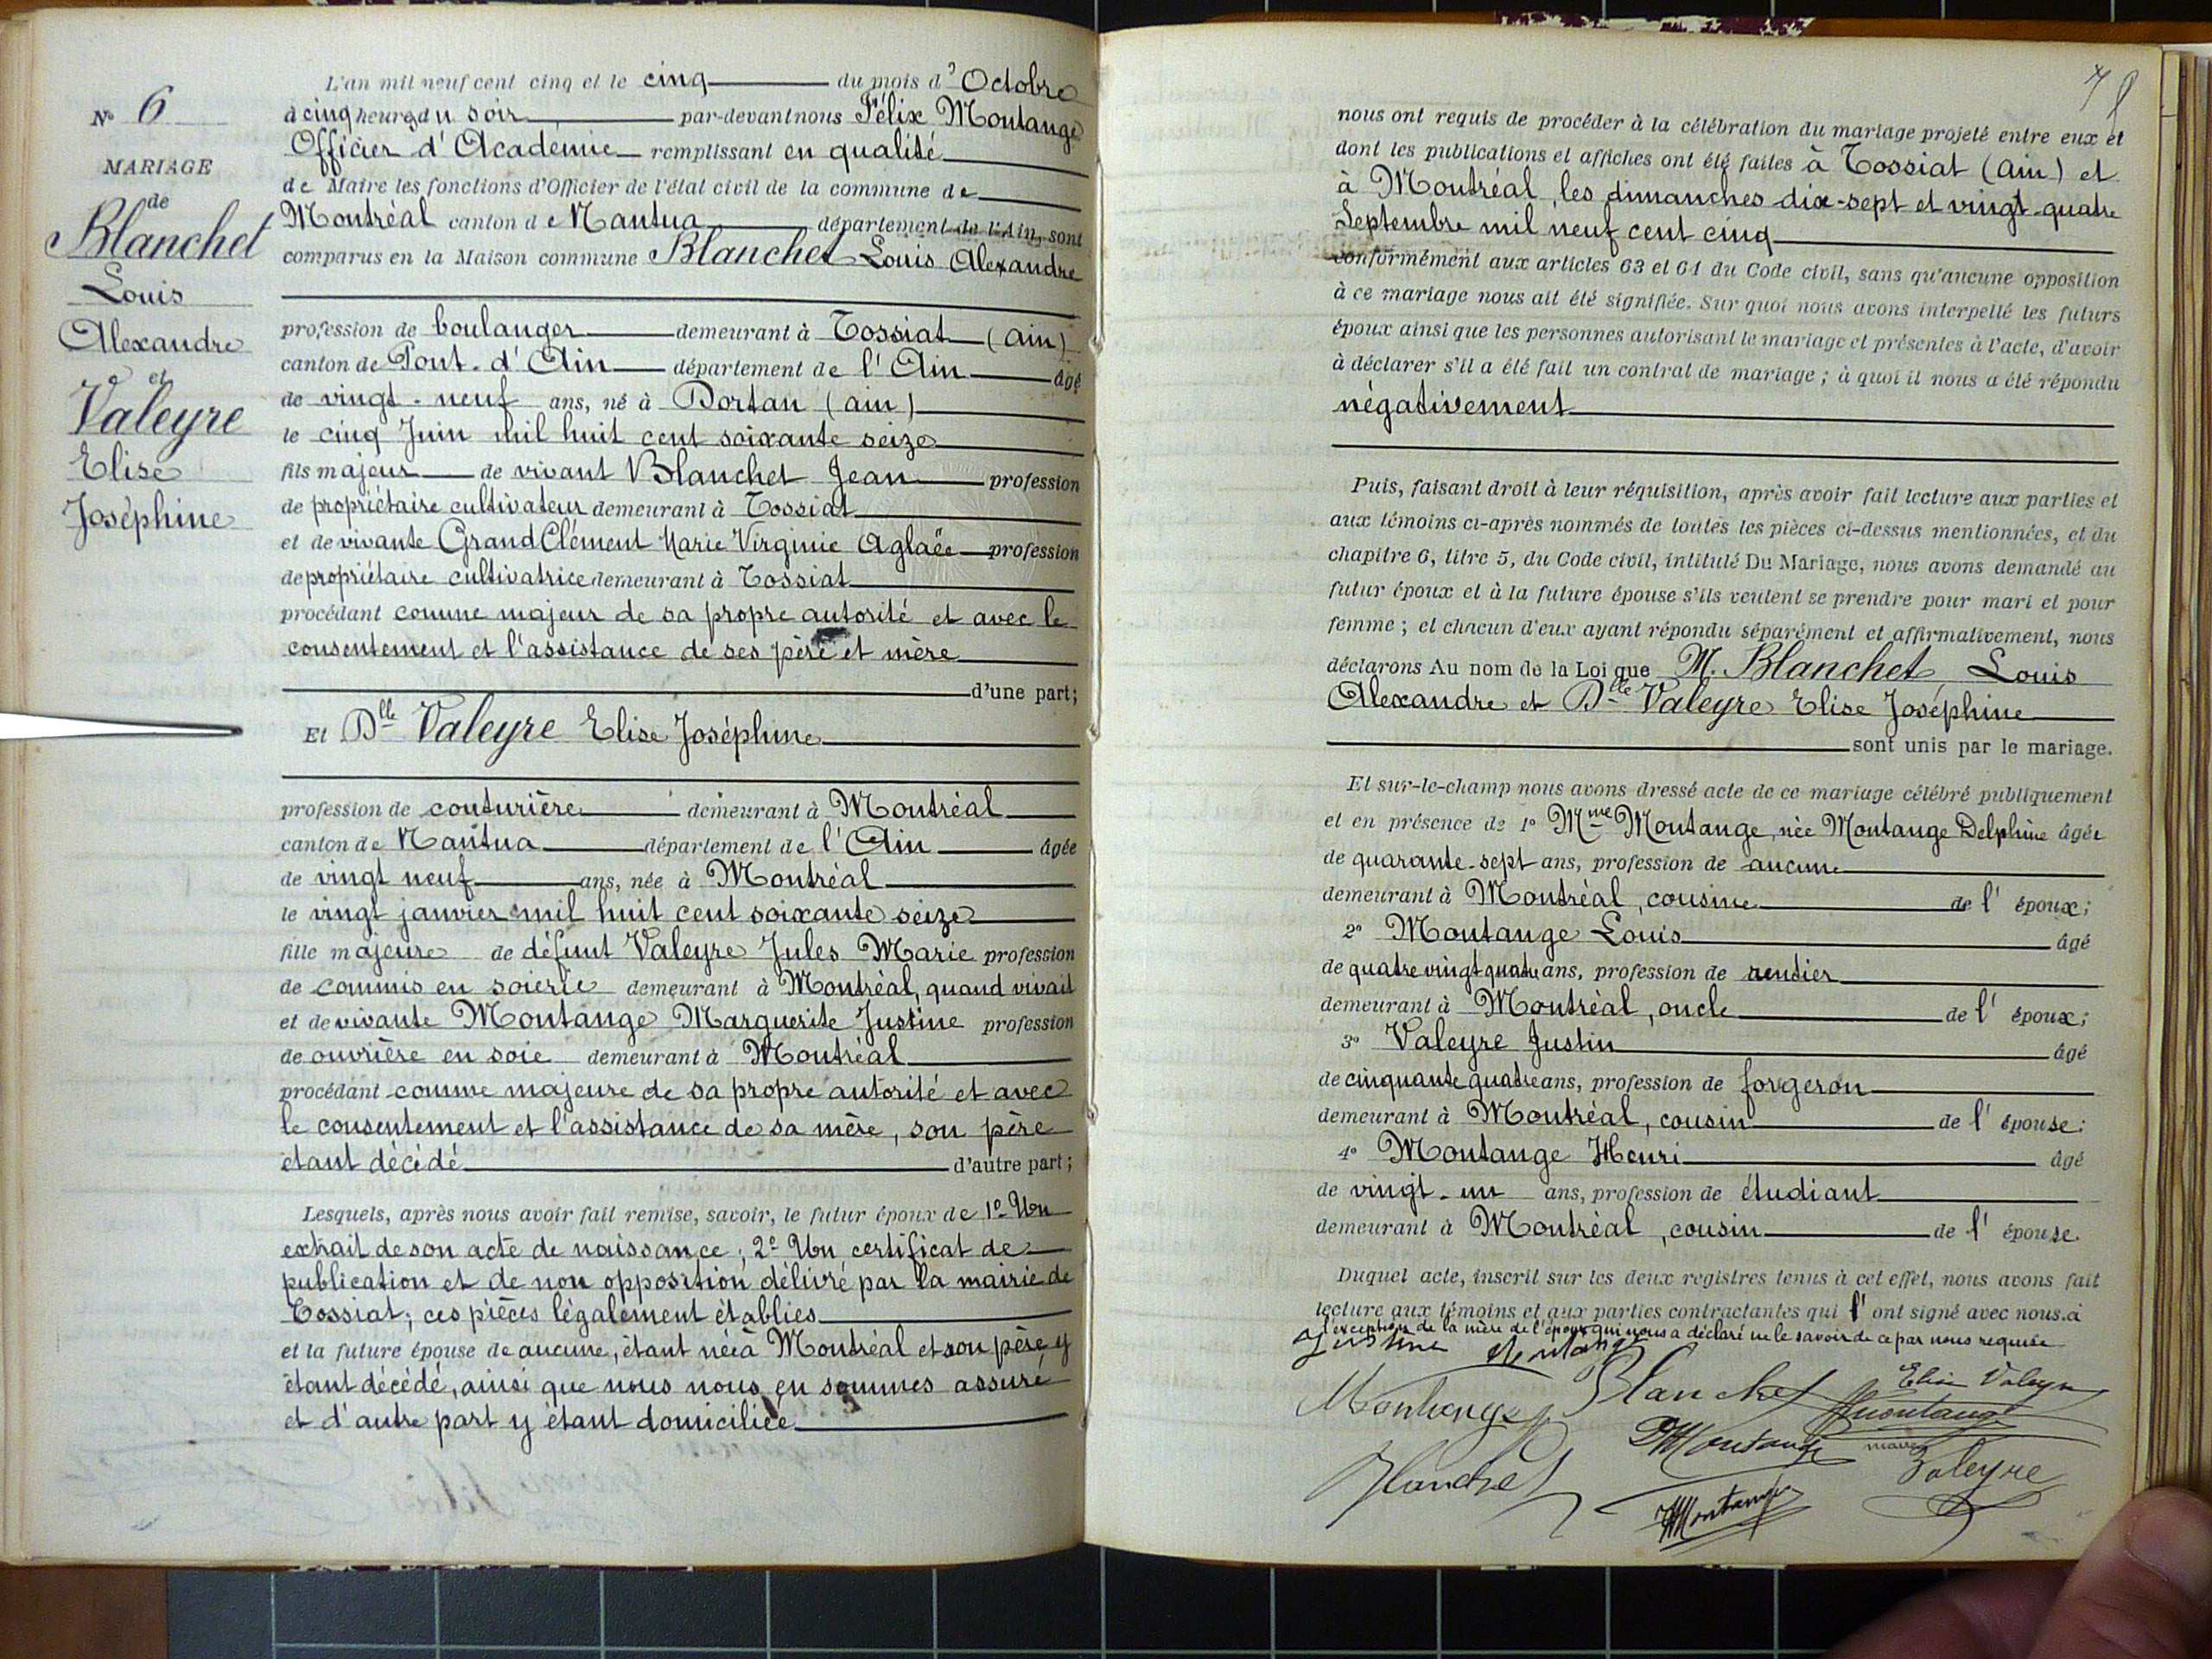 N° 6
MARIAGE
de
Blanchet
Louis
Alexandre
et
Valeyre
Elise
Joséphine
L'an mil neuf cent cinq et le cinq du mois d'Octobre
à cinq heures du soir par-devant nous Félix Montange
Officier d'Académie remplissant en qualité
de Maire les fonctions d'Officier de l'état civil de la commune de
Montréal canton de Nantua département de l'Ain, sont
comparus en la Maison commune Blanchet Louis Alexandre
profession de boulanger demeurant à Tossiat (Ain)
canton de Pont-d'Ain département de l'Ain âgé
de vingt-neuf ans, né à Dortan (ain)
le cinq Juin mil huit cent soixante seize
fils majeur de vivant Blanchet Jean profession
de propriétaire cultivateur demeurant à Tossiat
et de vivante Grand Clément Marie Virginie Aglaëe profession
de propriétaire cultivatrice demeurant à Tossiat
procédant comme majeur de sa propre autorité et avec le
consentement et l'assistance de ses père et mère
d'une part;
Et Dlle Valeyre Elise Joséphine
profession de couturière demeurant à Montréal
canton de Nantua département de l'Ain âgée
de vingt neuf ans, née à Montréal
le vingt janvier mil huit cent soixante seize
fille majeure de défunt Valeyre Jules Marie profession
de commis en soierie demeurant à Montréal, quand vivait
et de vivante Montange Marguerite Justine profession
de ouvrière en soie demeurant à Montréal
procédant comme majeure de sa propre autorité et avec
le consentement et l'assistance de sa mère, son père
étant décédé d'autre part;
Lesquels, après nous avoir fait remise, savoir, le futur époux de 1° Un
extrait de son acte de naissance; 2° Un certificat de
publication et de non opposition délivré par la mairie de
Tossiat; ces pièces légalement établies
et la future épouse de aucune, étant née à Montréal et son père y
étant décédé, ainsi que nous nous en sommes assuré
et d'autre part y étant domiciliée
nous ont requis de procéder à la célébration du mariage projeté entre eux et
dont les publications et affiches ont été faites à Tossiat (Ain) et
à Montréal, les dimanches dix-sept et vingt-quatre
Septembre mil neuf cent cinq
conformément aux articles 63 et 64 du Code civil, sans qu'aucune opposition
à ce mariage nous ait été signifiée. Sur quoi nous avons interpellé les futurs
époux ainsi que les personnes autorisant le mariage et présentes à l'acte, d'avoir
à déclarer s'il a été fait un contrat de mariage; à quoi il nous a été répondu
négativement
Puis, faisant droit à leur réquisition, après avoir fait lecture aux parties et
aux témoins ci-après nommés de toutes les pièces ci-dessus mentionnées, et du
chapitre 6, titre 5, du Code civil, intitulé Du Mariage, nous avons demandé au
futur époux et à la future épouse s'ils veulent se prendre pour mari et pour
femme; et chacun d'eux ayant répondu séparément et affirmativement, nous
déclarons Au nom de la Loi que M. Blanchet Louis
Alexandre et Dlle Valeyre Elise Joséphine
sont unis par le mariage.
Et sur-le-champ nous avons dressé acte de ce mariage célébré publiquement
et en présence de 1° Mme Montange, née Montange Delphine âgée
de quarante-sept ans, profession de aucune
demeurant à Montréal, cousine de l'époux;
2° Montange Louis âgé
de quatre vingt quatre ans, profession de rentier
demeurant à Montréal, oncle de l'époux;
3° Valeyre Justin âgé
de cinquante quatre ans, profession de forgeron
demeurant à Montréal, cousin de l'épouse;
4° Montange Henri âgé
de vingt-un ans, profession de étudiant
demeurant à Montréal, cousin de l'épouse.
Duquel acte, inscrit sur les deux registres tenus à cet effet, nous avons fait
lecture aux témoins et aux parties contractantes qui l'ont signé avec nous. à
l'exception de la mère de l'époux qui nous a déclaré ne le savoir de ce par nous requise
Justine Montange
Montange Blanchet Elise Valeyre
Montange
DMontange maire
Blanchet Valeyre
HMontange